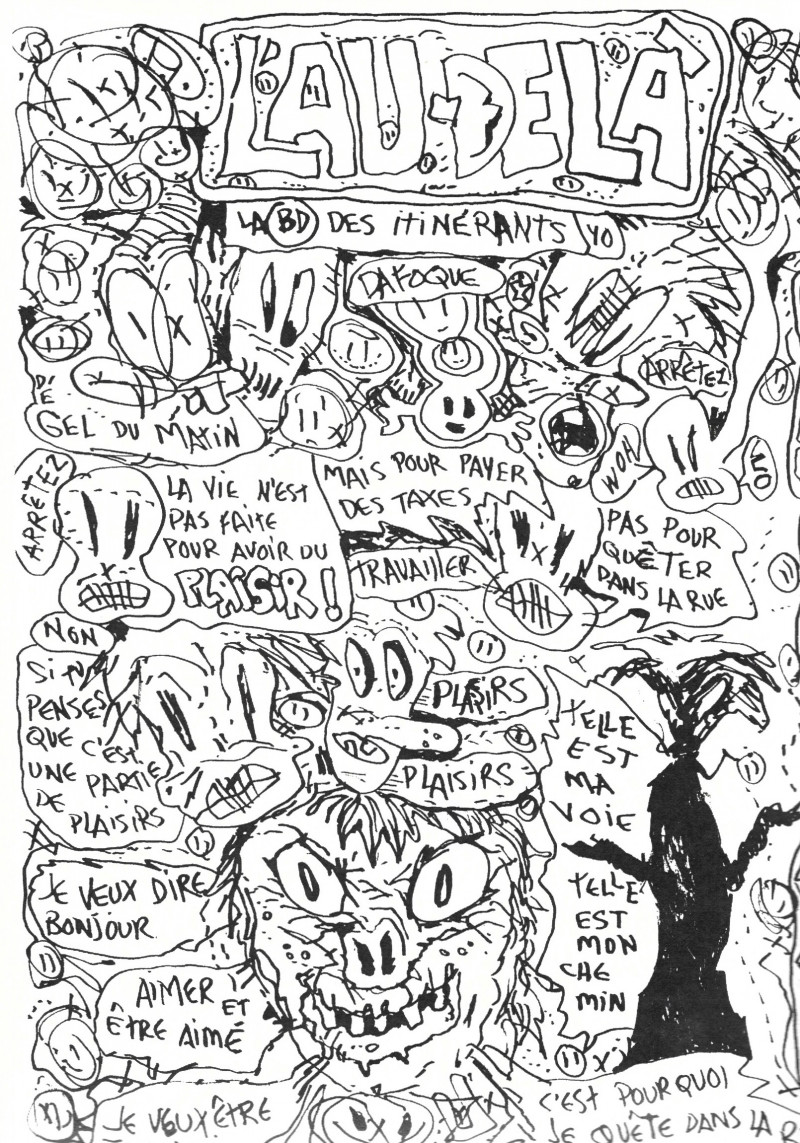 L'AU-DELÀ
LA BD DES ITINÉRANTS YO
DAFOQUE
ARRÊTEZ
DÉ
GEL DU MATIN
WOH
NO
ARRÊTEZ
LA VIE N'EST
PAS FAITE
POUR AVOIR DU
PLAISIR !
MAIS POUR PAYER
DES TAXES
TRAVAILLER
PAS POUR
QUÊTER
DANS LA RUE
NON
SI TU
PENSES
QUE C'EST
UNE PARTIE
DE PLAISIRS
PLAISIRS
PLAISIRS
TELLE
EST
MA
VOIE
JE VEUX DIRE
BONJOUR
TELLE
EST
MON
CHE
MIN
AIMER ET
ÊTRE AIMÉ
JE VEUX ÊTRE
C'EST POURQUOI
JE QUÊTE DANS LA